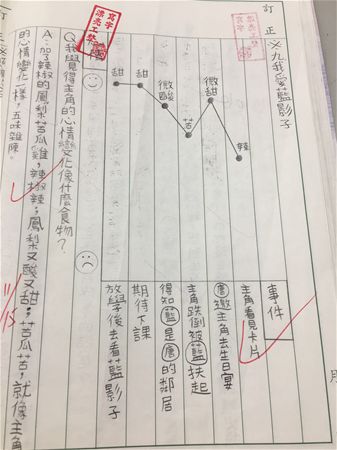 訂正
九我愛藍影子
辣
微甜
苦
微酸
甜
甜
事件
主角看見卡片
唐邀主角去生日宴
主角跌倒被藍扶起
得知藍是唐的鄰居
期待下課
放學後去看藍影子
寫字
漂亮工整
Q:我覺得主角的心情變化像什麼食物?
A:加了辣椒的鳳梨苦瓜雞,辣椒辣;鳳梨又酸又甜;苦瓜苦,就像主角
的心情變化一樣,五味雜陳。
11/13